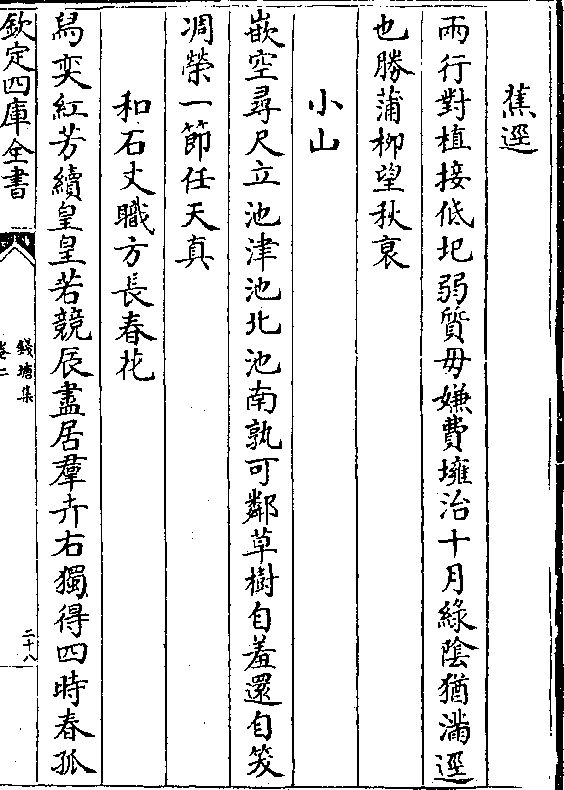 蕉逕
兩行對植接低圯弱質毋嫌費壅治十月綠陰猶滿逕
也勝蒲柳望秋衰
小山
嵌空尋尺立池津池北池南孰可鄰草樹自羞還自笑
凋榮一節任天真
和石丈職方長春花
舄奕紅芳續皇皇若競辰盡居羣卉右獨得四時春孤
欽定四庫全書
錢塘集
卷二
二十八